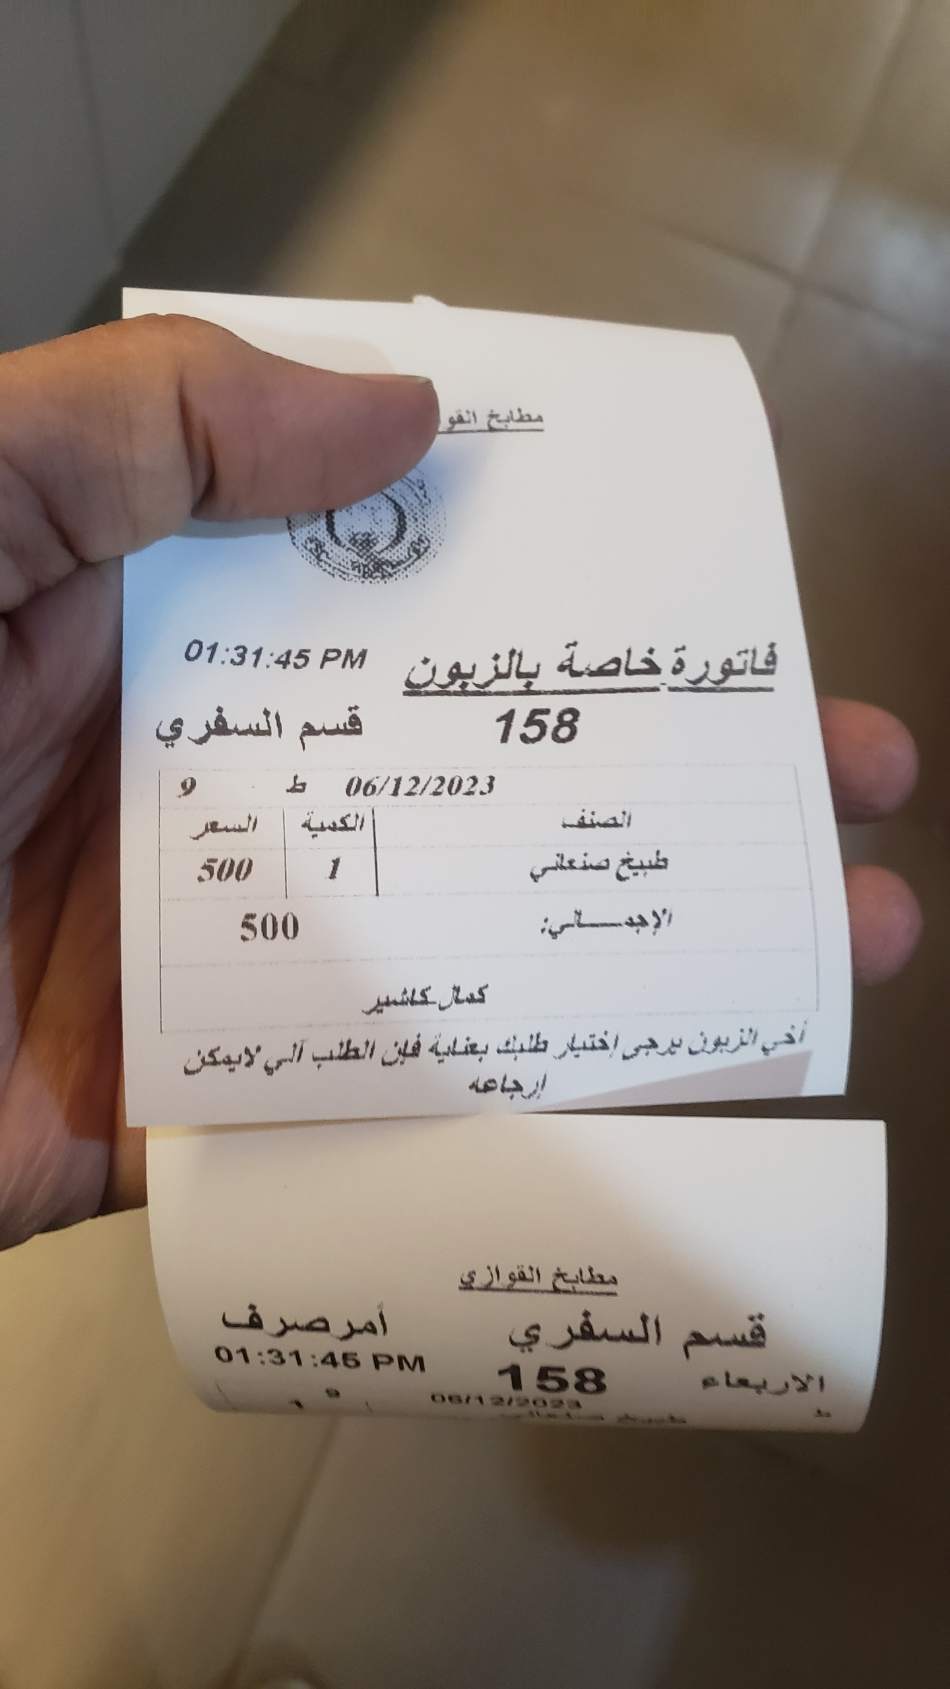 مطابخ القو
فاتورة خاصة بالزبون 01:31:45 PM
158 قسم السفري
06/12/2023 ط 9
الصنف الكمية السعر
طبيخ صنعاني 1 500
الإجمـــــالي: 500
كمال كاشير
أخي الزبون يرجى إختيار طلبك بعناية فإن الطلب آلي لايمكن
إرجاعه
مطابخ القوازي
قسم السفري أمر صرف
الاربعاء 158 01:31:45 PM
ط 06/12/2023 9
طبيخ صنعاني 1